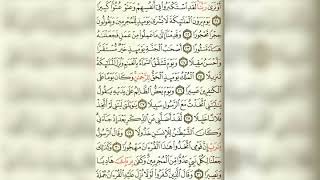 أَوْ نَرَىٰ رَبَّنَا لَقَدِ ٱسْتَكْبَرُوا۟ فِىٓ أَنفُسِهِمْ وَعَتَوْ عُتُوًّا كَبِيرًا
۝ يَوْمَ يَرَوْنَ ٱلْمَلَٰٓئِكَةَ لَا بُشْرَىٰ يَوْمَئِذٍ لِّلْمُجْرِمِينَ وَيَقُولُونَ
حِجْرًا مَّحْجُورًا ۝ وَقَدِمْنَآ إِلَىٰ مَا عَمِلُوا۟ مِنْ عَمَلٍ فَجَعَلْنَٰهُ
هَبَآءً مَّنثُورًا ۝ أَصْحَٰبُ ٱلْجَنَّةِ يَوْمَئِذٍ خَيْرٌ مُّسْتَقَرًّا
وَأَحْسَنُ مَقِيلًا ۝ وَيَوْمَ تَشَقَّقُ ٱلسَّمَآءُ بِٱلْغَمَٰمِ وَنُزِّلَ ٱلْمَلَٰٓئِكَةُ
تَنزِيلًا ۝ ٱلْمُلْكُ يَوْمَئِذٍ ٱلْحَقُّ لِلرَّحْمَٰنِ وَكَانَ يَوْمًا عَلَى
ٱلْكَٰفِرِينَ عَسِيرًا ۝ وَيَوْمَ يَعَضُّ ٱلظَّالِمُ عَلَىٰ يَدَيْهِ يَقُولُ
يَٰلَيْتَنِى ٱتَّخَذْتُ مَعَ ٱلرَّسُولِ سَبِيلًا ۝ يَٰوَيْلَتَىٰ لَيْتَنِى لَمْ أَتَّخِذْ
فُلَانًا خَلِيلًا ۝ لَّقَدْ أَضَلَّنِى عَنِ ٱلذِّكْرِ بَعْدَ إِذْ جَآءَنِى
وَكَانَ ٱلشَّيْطَٰنُ لِلْإِنسَٰنِ خَذُولًا ۝ وَقَالَ ٱلرَّسُولُ
يَٰرَبِّ إِنَّ قَوْمِى ٱتَّخَذُوا۟ هَٰذَا ٱلْقُرْءَانَ مَهْجُورًا ۝ وَكَذَٰلِكَ
جَعَلْنَا لِكُلِّ نَبِىٍّ عَدُوًّا مِّنَ ٱلْمُجْرِمِينَ وَكَفَىٰ بِرَبِّكَ هَادِيًا
وَنَصِيرًا ۝ وَقَالَ ٱلَّذِينَ كَفَرُوا۟ لَوْلَا نُزِّلَ عَلَيْهِ ٱلْقُرْءَانُ جُمْلَةً